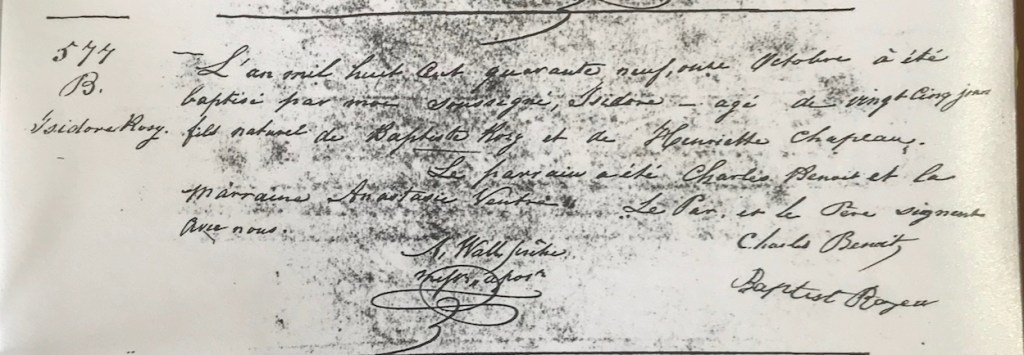 577
B.
Isidore Rosy.
L'an mil huit cent quarante neuf, onze Octobre à été
baptisé par moi soussigné, Isidore - agé de vingt cinq jours
fils naturel de Baptiste Rosy et de Henriette Chapeau.
Le parrain a été Charles Benoit et la
Marraine Anastasie Le Par. et le Père signent
avec nous.
A. Wall prêtre
missre. aposre.
Charles Benoit
Baptist